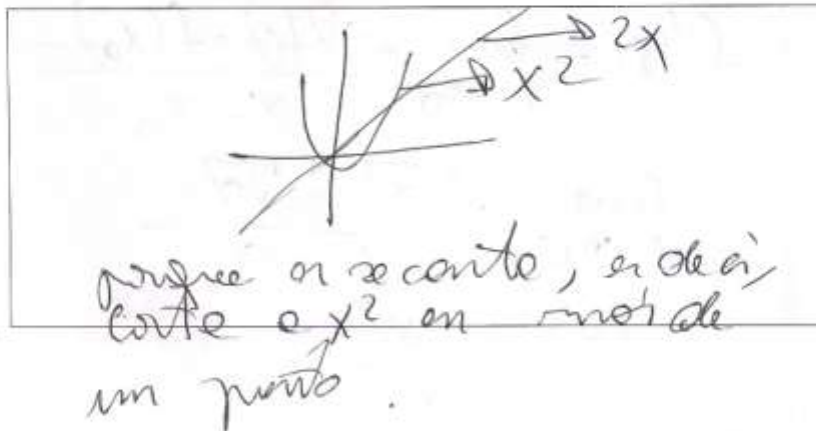 2x
x²
porque es secante, es decir,
corta a x² en más de
un punto.